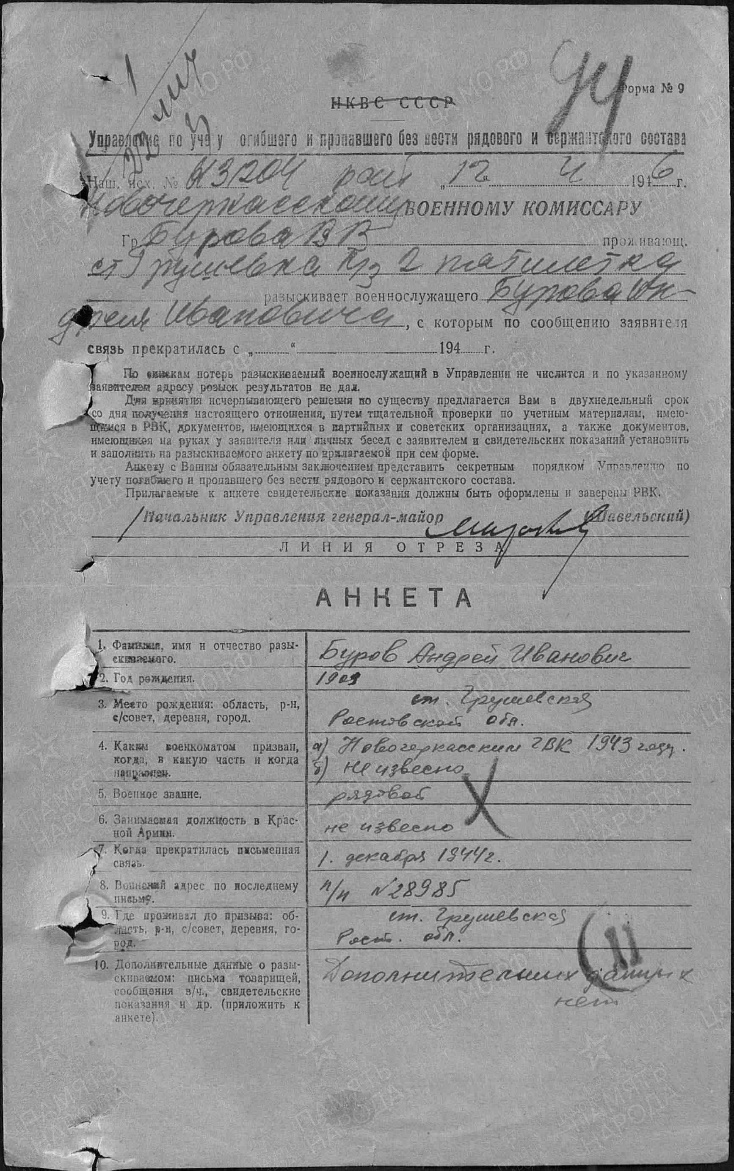 Форма № 9
НКВС СССР
Управление по учету погибшего и пропавшего без вести рядового и сержантского состава
Наш. исх. № 12 4 1946 г.
Новочеркасскому ВОЕННОМУ КОМИССАРУ
Гр. Бурова В В проживающ.
ст Грушевка 2 пятилетка
разыскивает военнослужащего Бурова Ан-
дрея Ивановича, с которым по сообщению заявителя
связь прекратилась с „ “ 194 г.
По спискам потерь разыскиваемый военнослужащий в Управлении не числится и по указанному
заявителем адресу розыск результатов не дал.
Для принятия исчерпывающего решения по существу предлагается Вам в двухнедельный срок
со дня получения настоящего отношения, путем тщательной проверки по учетным материалам, имею-
щимся в РВК, документов, имеющихся в партийных и советских организациях, а также документов,
имеющихся на руках у заявителя или личных бесед с заявителем и свидетельских показаний установить
и заполнить на разыскиваемого анкету по прилагаемой при сем форме.
Анкету с Вашим обязательным заключением представить секретным порядком Управлению по
учету погибшего и пропавшего без вести рядового и сержантского состава.
Прилагаемые к анкете свидетельские показания должны быть оформлены и заверены РВК.
Начальник Управления генерал-майор (Шавельский)
ЛИНИЯ ОТРЕЗА
АНКЕТА
1. Фамилия, имя и отчество разы-
скиваемого.
Буров Андрей Иванович
2. Год рождения.
1909
3. Место рождения: область, р-н,
с/совет, деревня, город.
ст. Грушевская
Ростовской обл.
4. Каким военкоматом призван,
когда, в какую часть и когда
направлен.
а) Новочеркасским ГВК 1943 году.
б) не извесно
5. Военное звание.
рядовой
6. Занимаемая должность в Крас-
ной Армии.
не извесно
7. Когда прекратилась письменная
связь.
1. декабря 1944г.
8. Воинский адрес по последнему
письму.
п/п №28985
9. Где проживал до призыва: об-
ласть, р-н, с/совет, деревня, го-
род.
ст. Грушевская
Рост. обл.
10. Дополнительные данные о разы-
скиваемом: письма товарищей,
сообщения в/ч., свидетельские
показания и др. (приложить к
анкете).
Дополнительних даных
нет
11